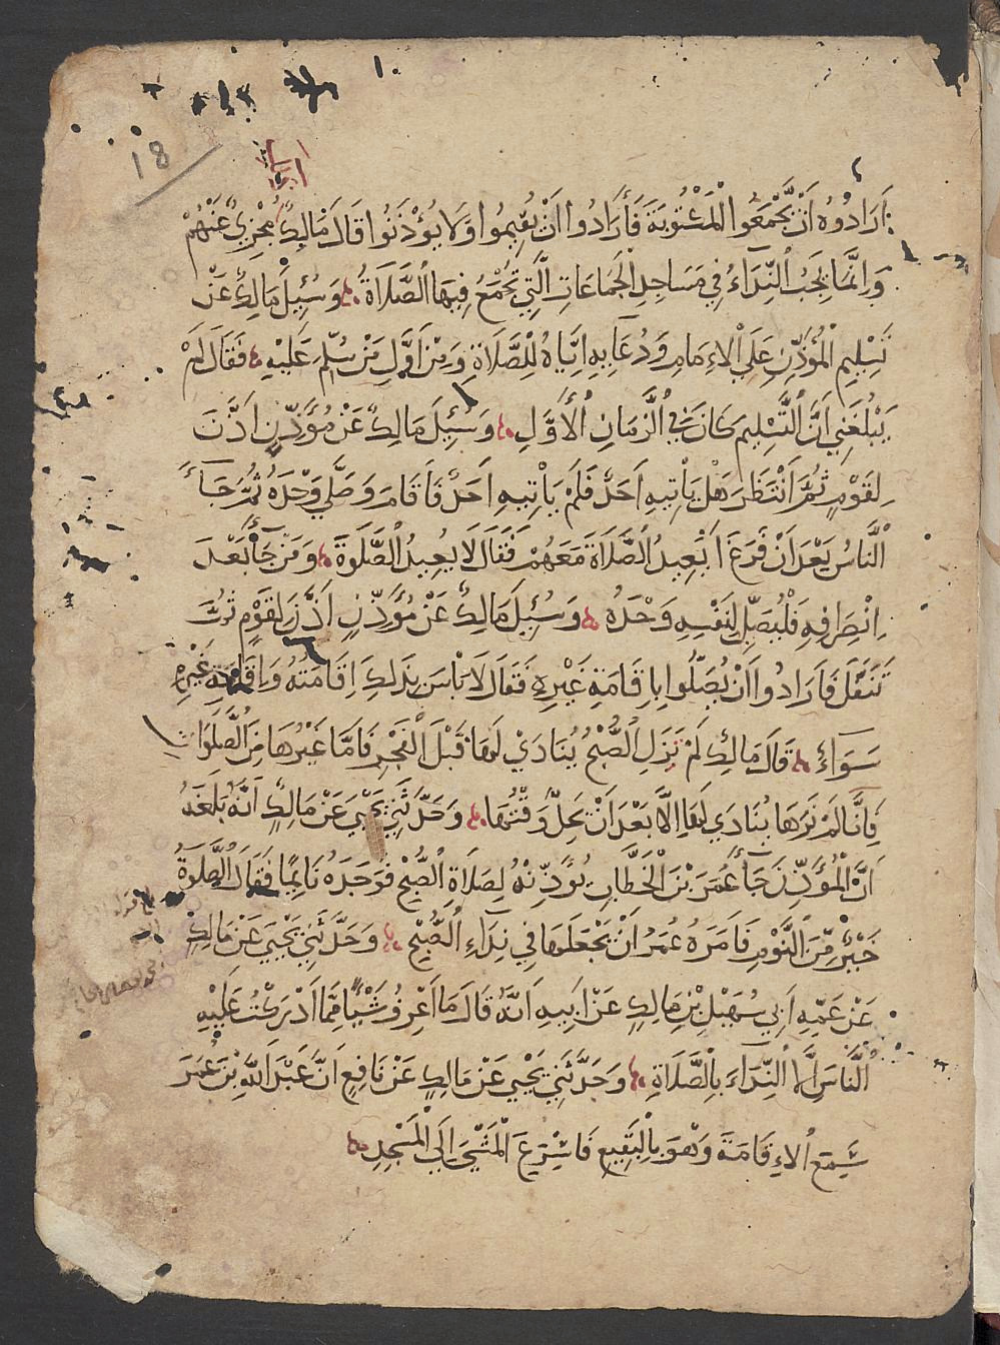 18
أَرَادُوْهُ اَنْ يَّجْمَعُوا الْمَكْتُوبَةَ فَأَرَادُوا اَنْ يُقِيمُوا وَلَا يُوْذِنُوا قَالَ مَالِكٌ مُجْزِئٌ عَنْهُمْ
وَاِنَّمَا يَجِبُ النِّدَاءُ فِي مَسَاجِدِ الْجَمَاعَاتِ الَّتِي تُجْمَعُ فِيهَا الصَّلَاةُ وَسُئِيلَ مَالِكٌ عَنْ
تَسْلِيمِ الْمُؤَذِّنِ عَلَي الْاِمَامِ وَدُعَايِهِ اِيَّاهُ لِلصَّلَاةِ وَمِنْ اَوَّلِ مَنْ سُلِّمَ عَلَيْهِ فَقَالَ لَمْ
يَبْلُغْنِي اَنَّ التَّسْلِيمَ كَانَ فِي الزَّمَانِ الْاَوَّلِ وَسُئِيلَ مَالِكٌ عَنْ مُؤَذِّنٍ اَذَّنَ
لِقَوْمٍ ثُمَّ انْتَظَرَ هَلْ يَاْتِيهِ اَحَدٌ فَلَمْ يَاْتِيهِ اَحَدٌ فَاَقَامَ وَصَلَّي وَحْدَهُ ثُمَّ جَاءَ
النَّاسُ بَعْدَ اَنْ فَرَغَ اَيُعِيدُ الصَّلَاةَ مَعَهُمْ فَقَالَ لَا يُعِيدُ الصَّلَوةَ وَمَنْ جَاءَ بَعْدَ
اِنْصِرَافِهِ فَلْيُصَلِّ لِنَفْسِهِ وَحْدَهُ وَسُئِيلَ مَالِكٌ عَنْ مُؤَذِّنٍ اَذَّنَ لِقَوْمٍ ثُمَّ
تَنَفَّلَ فَاَرَادُوا اَنْ يُصَلُّوا بِاِقَامَةِ غَيْرِهِ فَقَالَ لَا بَاْسَ بِذَلِكَ اِقَامَتُهُ وَاِقَامَةُ غَيْرِهِ
سَوَاءٌ قَالَ مَالِكٌ لَمْ تَزَلِ الصُّبْحُ يُنَادَيْ لَهَا قَبْلَ الْفَجْرِ فَاَمَّا غَيْرُهَا مِنَ الصَّلَوَاتِ
فَاِنَّا لَمْ نَرَهَا يُنَادَي لَهَا اِلَّا بَعْدَ اَنْ يَحِلَّ وَقْتُهَا وَحَدَّثَنِي يَحْيَي عَنْ مَالِكٍ اَنَّهُ بَلَغَهُ
اَنَّ الْمُؤَذِّنَ جَاءَ عُمَرَ بْنَ الْخَطَّابِ يُؤَذِّنُهُ لِصَلَاةِ الصُّبْحِ فَوَجَدَهُ نَايِمًا فَقَالَ الصَّلَوةُ
خَيْرٌ مِّنَ النَّوْمِ فَاَمَرَهُ عُمَرُ اَنْ يَجْعَلَهَا فِي نِدَاءِ الصُّبْحِ وَحَدَّثَنِي يَحْيَي عَنْ مَالِكٍ
عَنْ عَمِّهِ اَبِي سُهَيْلِ بْنِ مَالِكٍ عَنْ اَبِيهِ اَنَّهُ قَالَ مَا اَعْرِفُ شَيْئًا مِمَّا اَدْرَكْتُ عَلَيْهِ
النَّاسَ اِلَّا النِّدَاءَ بِالصَّلَاةِ وَحَدَّثَنِي يَحْيَي عَنْ مَالِكٍ عَنْ نَافِعٍ اَنَّ عَبْدَ اللَّهِ بْنَ عُمَرَ
سَمِعَ الْاِقَامَةَ وَهْوَ بِالْبَقِيعِ فَاَسْرَعَ الْمَشْيَ اِلَي الْمَسْجِدِ